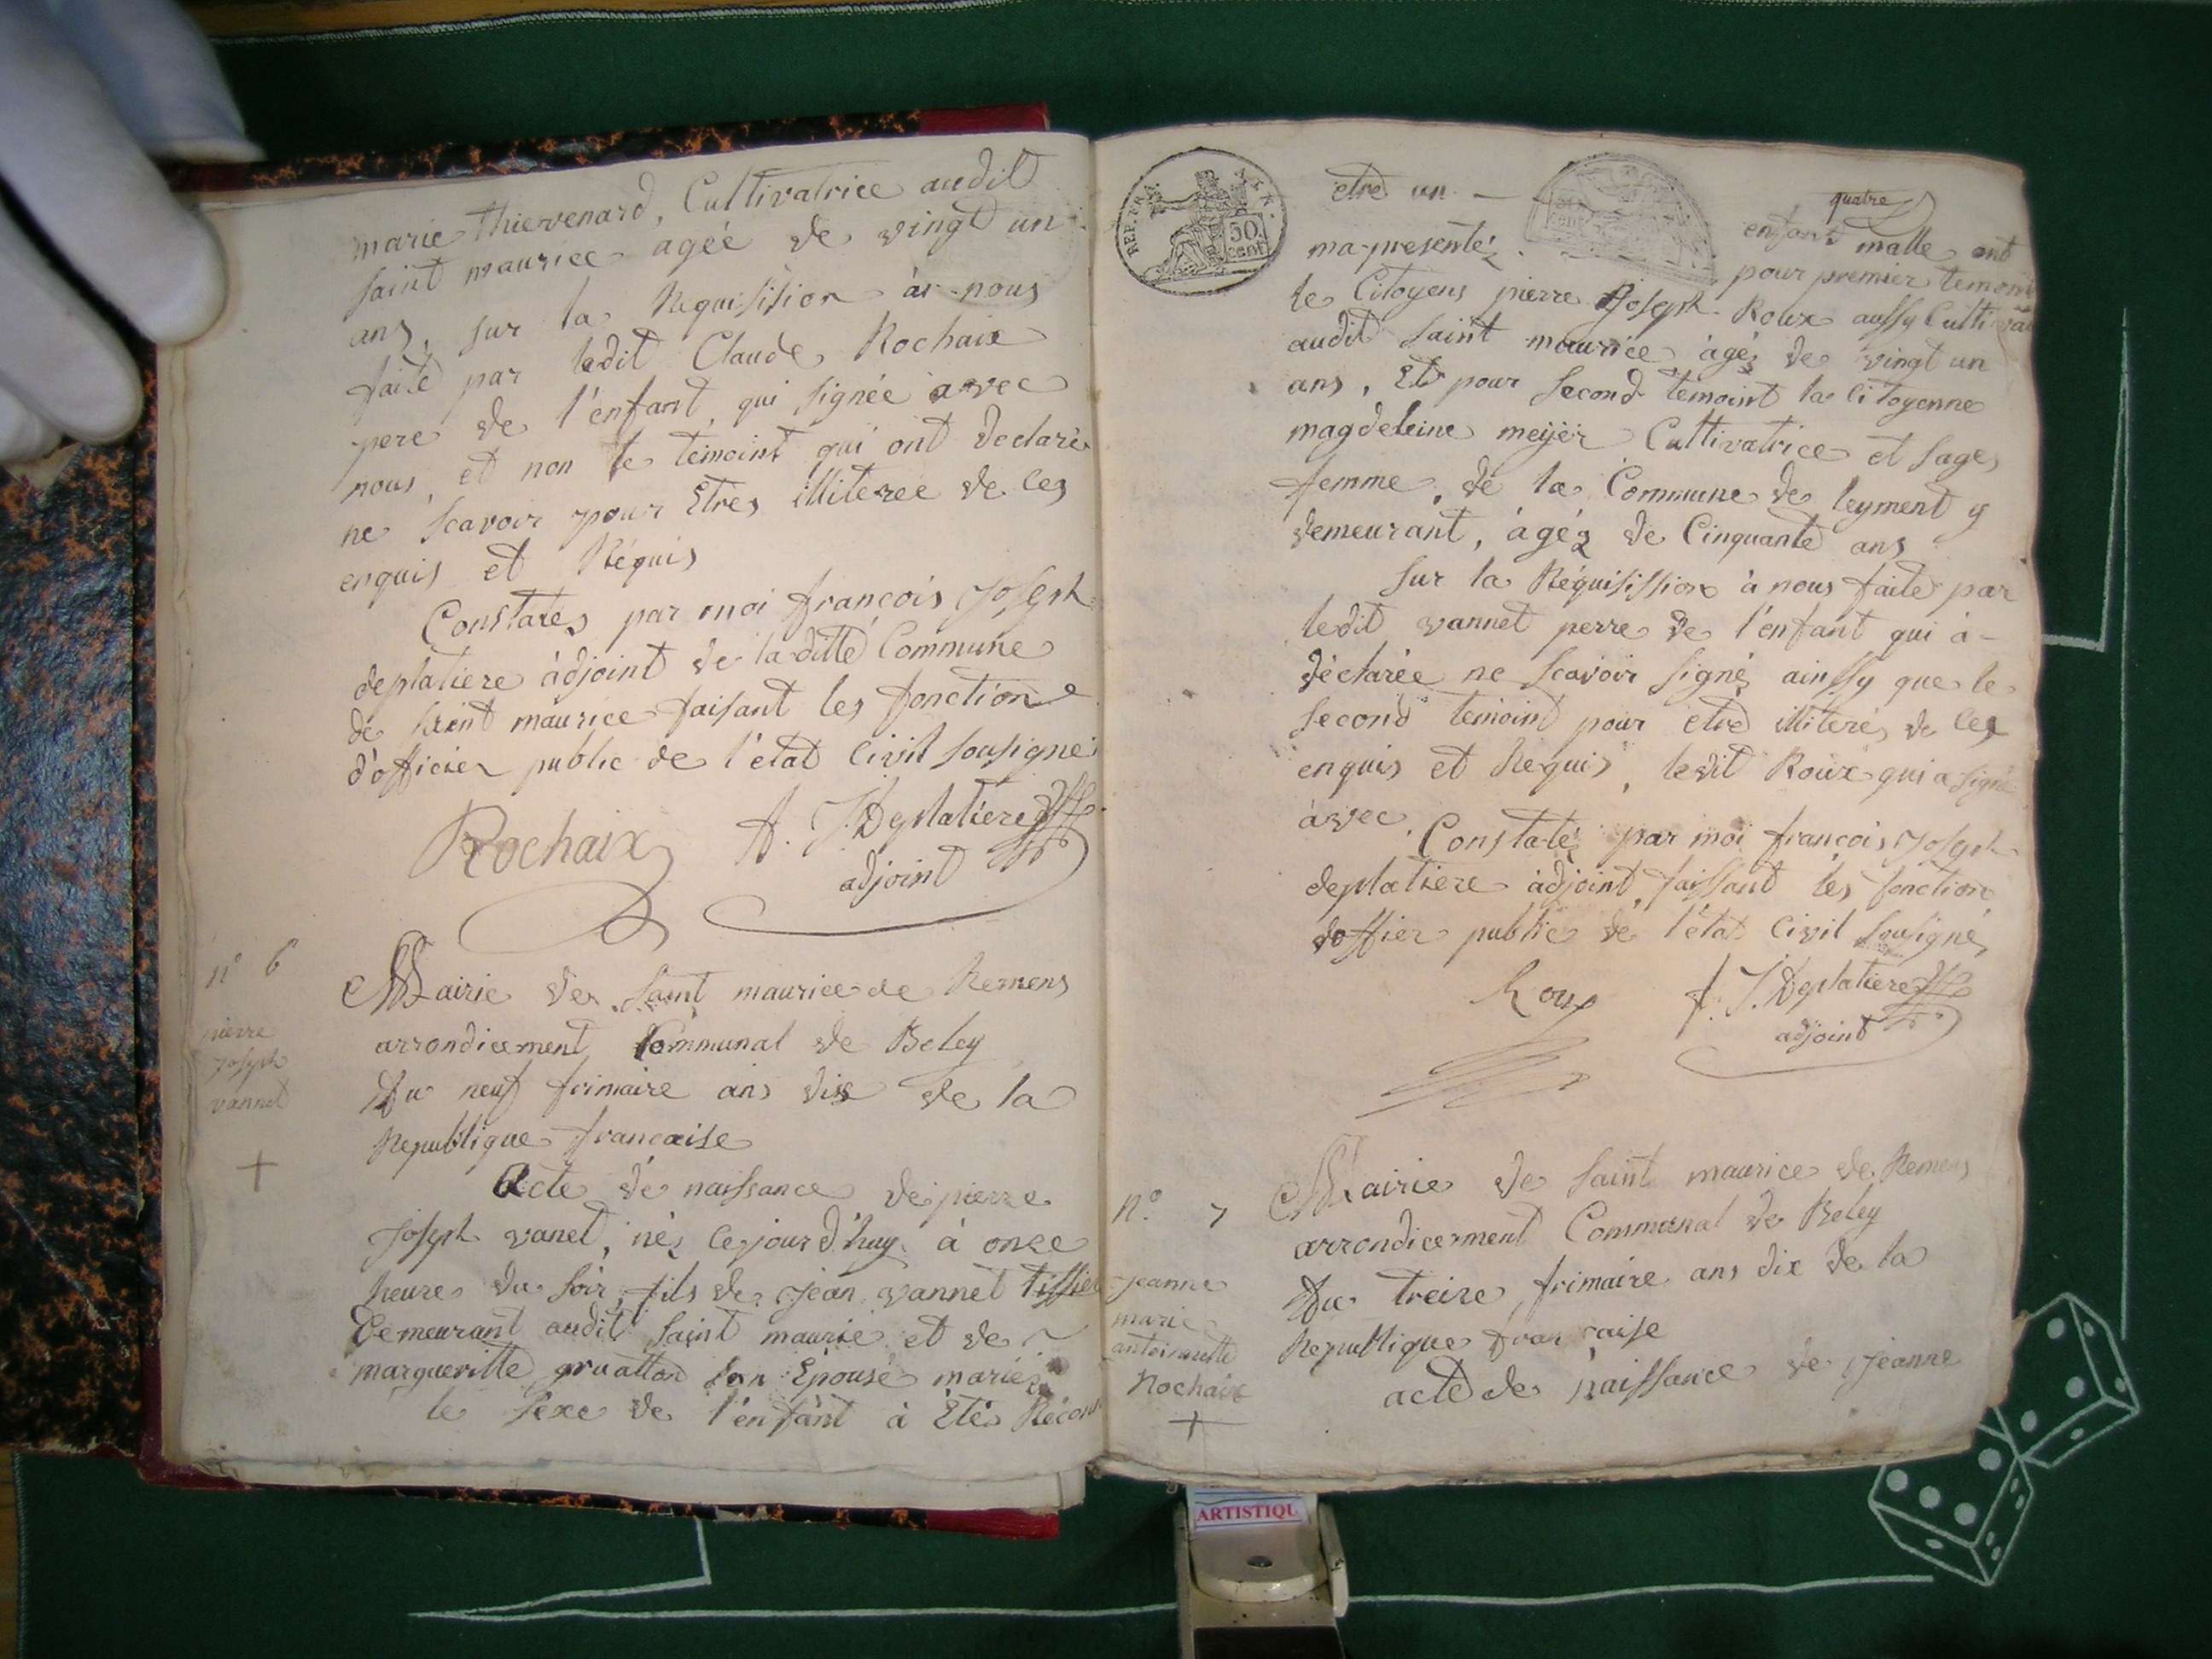 marie thievenard, Cultivatrice audit
saint maurice agée de vingt un
ans, sur la Requisition à nous
faite par ledit Claude Rochaix
pere de l'enfant qui signée avec
nous, et non le temoint qui ont declaré
ne scavoir pour Etres illiteree de ces
enquis et Réquis
Constates par moi françois Joseph
deplatiere àdjoint de la ditte Commune
de saint maurice faisant les fonction
d'officier public de l'état Civil sousigné
Rochaix F. J. Deplatiere
adjoint
n° 6
pierre
Joseph
vannet
Mairie de Saint maurice de Remens
arrondicement Communal de Beley
du neuf frimaire ans dix de la
Republique francaise
Acte de naissance de pierre
Joseph vanet, nés cejourd'huy à onze
heure du soir, fils de Jean vannet tissier
Demeurant audit saint maurie et de
margueritte gruatton son Epouse mariée
le sexe de l'enfant à Etés Récon
REP. FRA.
50 cent
etre un quatre
enfant malle ont
ma presenté pour premier temoin
le Citoyens pierre Joseph Roux aussy Cultiva
audit saint maurice àgés de vingt un
ans, Et pour second temoint la Citoyenne
magdeleine meyer Cultivatrice et sage
femme, de la Commune de leyment y
demeurant, àgés de Cinquante ans
sur la Réquisission à nous faite par
ledit vannet perre de l'enfant qui à
déclarée ne scavoir signé ainssy que le
second temoint pour etre illiterés de ces
enquis et Requis, ledit Roux qui a signé
àvec
Constaté par moi françois Joseph
deplatiere àdjoint, faissant les fonction
doffier public de l'état Civil sousigné
Roux F. J. Deplatiere
adjoint
n° 7
Jeanne
marie
antoinette
Rochaix
Mairie de Saint maurice de Remens
arrondicement Communal de Beley
du treize frimaire ans dix de la
Republique francaise
acte de naissance de Jeanne
ARTISTIQU